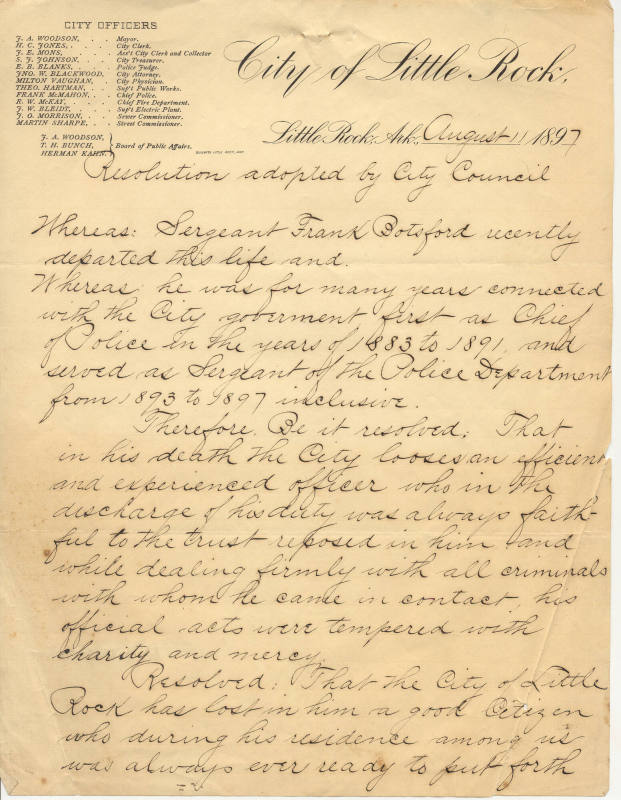 CITY OFFICERS
J. A. WOODSON, . . . Mayor.
H. C. JONES, . . . City Clerk.
J. E. MONS, . . . Ass't City Clerk and Collector
S. J. JOHNSON, . . . City Treasurer.
E. B. BLANKS, . . . Police Judge.
JNO. W. BLACKWOOD, City Attorney.
MILTON VAUGHAN, . City Physician.
THEO. HARTMAN, . . Sup't Public Works.
FRANK McMAHON, . . Chief Police.
R. W. McKAY, . . . Chief Fire Department.
J. W. BLEIDT, . . Sup't Electric Plant.
J. G. MORRISON, . . Sewer Commissioner.
MARTIN SHARPE, . . Street Commissioner.
J. A. WOODSON,
T. H. BUNCH, Board of Public Affairs.
HERMAN KAHN.
City of Little Rock.
Little Rock, Ark., August 11 1897
Resolution adopted by City Council
Whereas: Sergeant Frank Botsford recently
departed this life and.
Whereas he was for many years connected
with the City goverment first as Chief
of Police in the years of 1883 to 1891, and
served as Sergeant of the Police Department
from 1893 to 1897 inclusive.
Therefore, Be it resolved; That
in his death the City looses an efficient
and experienced officer who in the
discharge of his duty was always faith-
ful to the trust reposed in him, and
while dealing firmly with all criminals
with whom he came in contact, his
official acts were tempered with
charity and mercy.
Resolved; That the City of Little
Rock has lost in him a good Citizen
who during his residence among us
was always ever ready to put forth